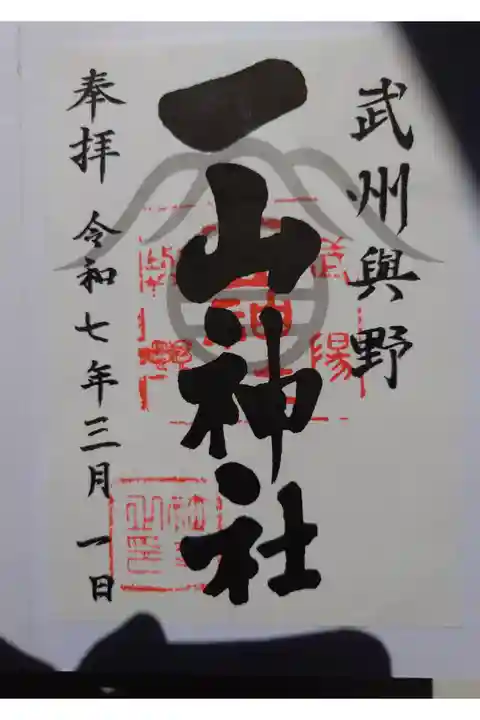 武州與野
一山神社
奉拝 令和七年三月一日